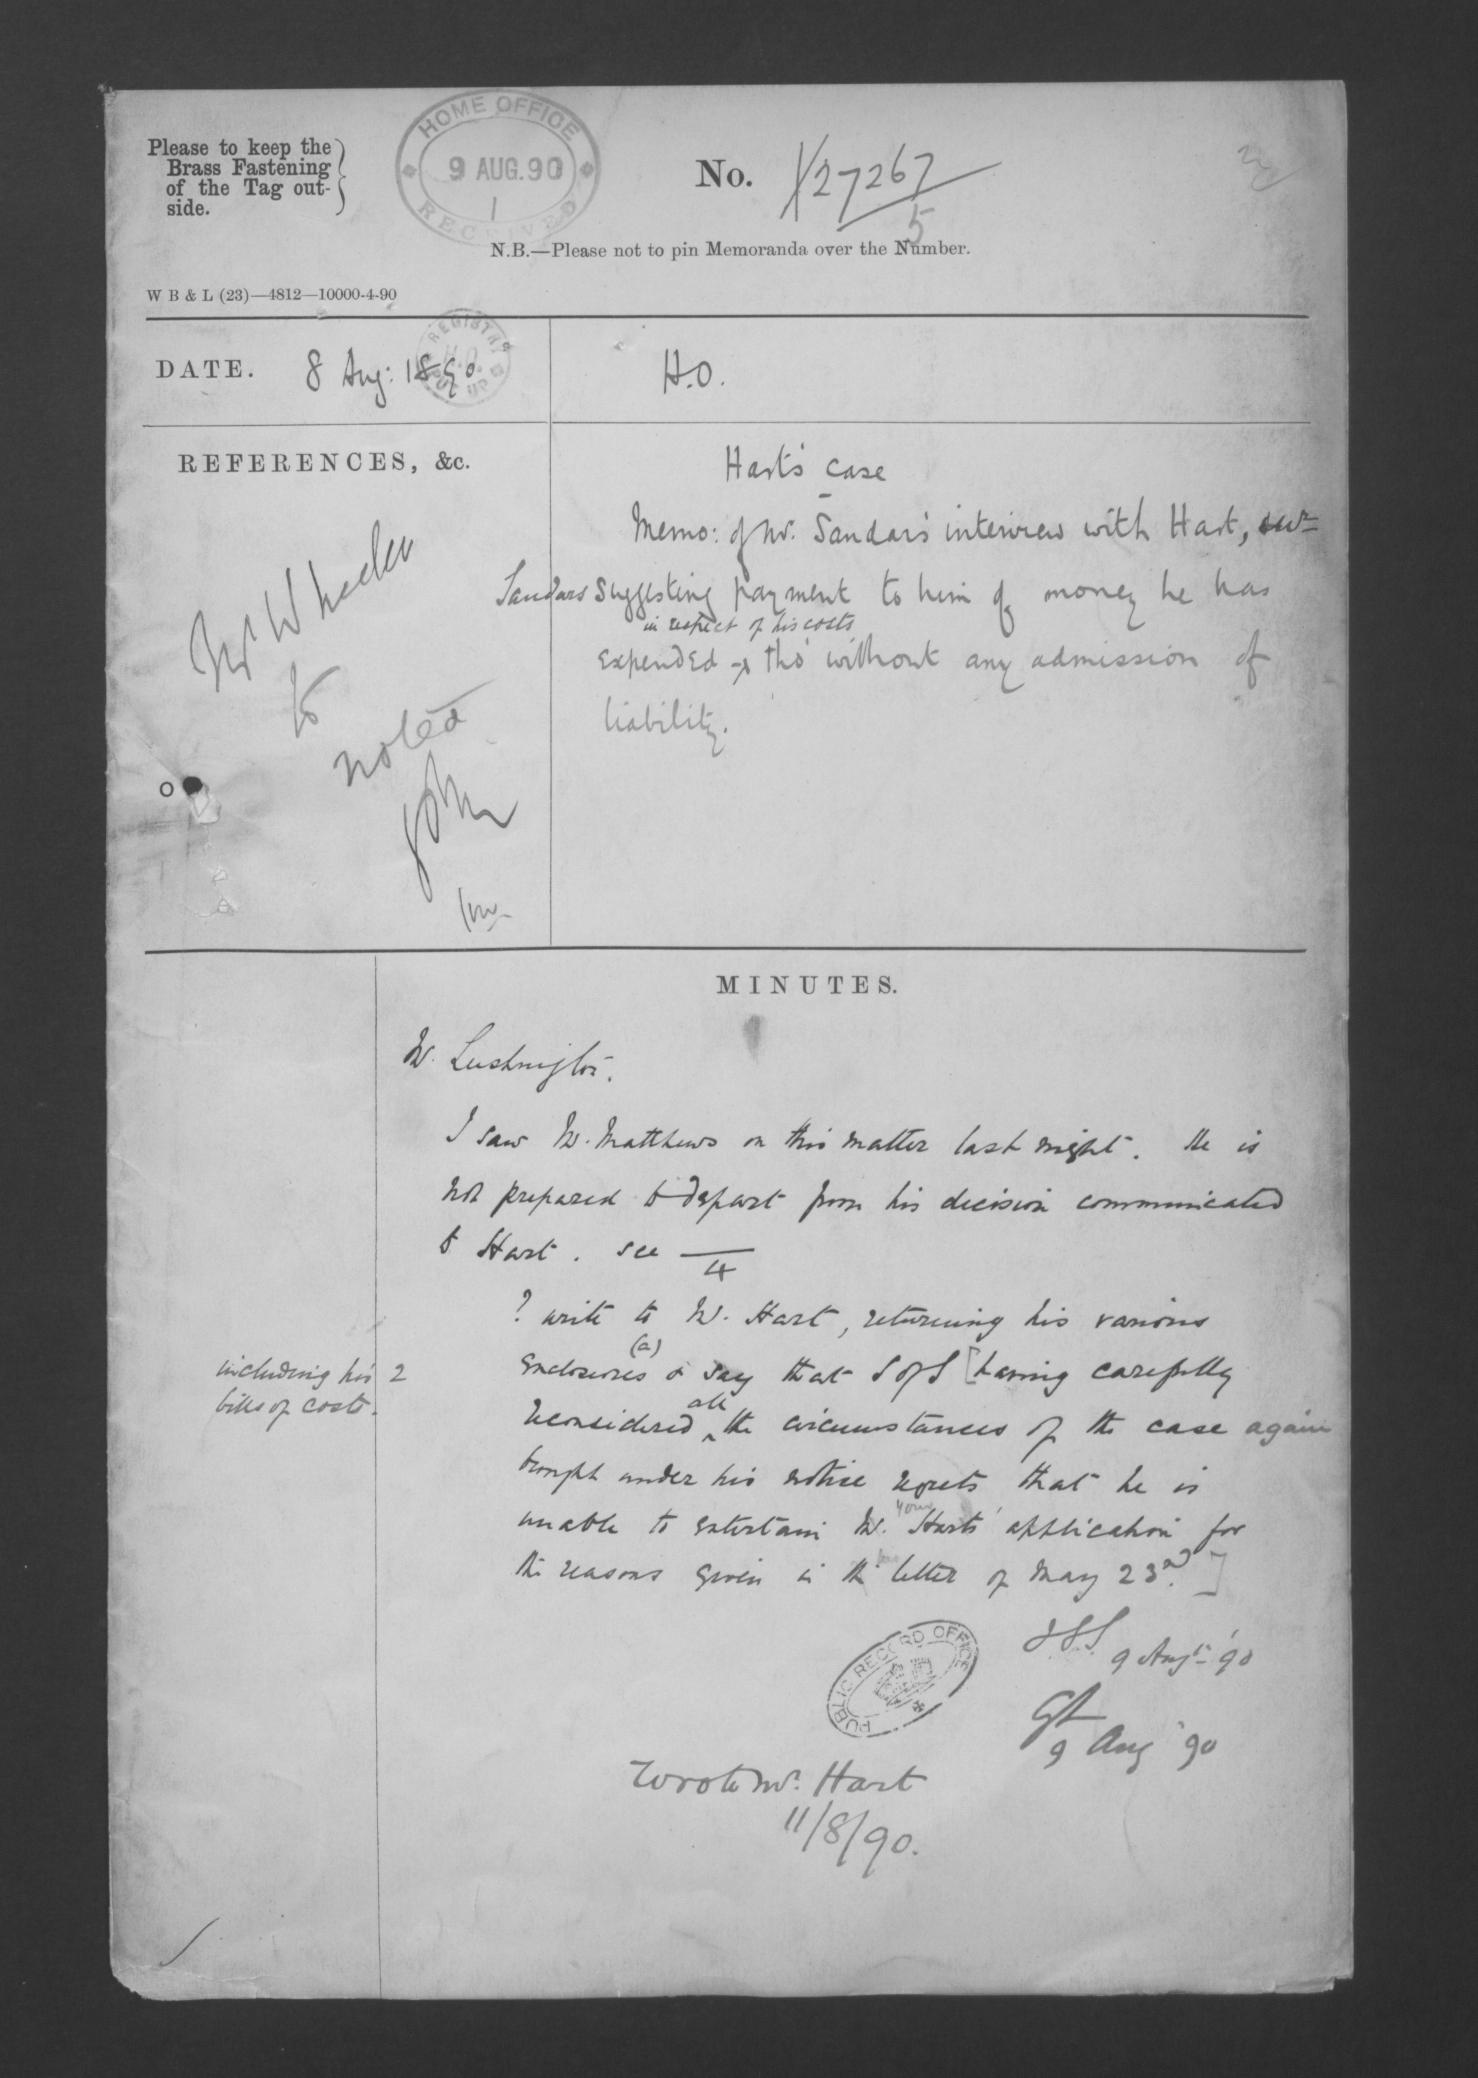 Please to keep the
Brass Fastening
of the Tag out-
side.
HOME OFFICE
9 AUG. 90
1
RECEIVED
No. X27267
5
N.B.—Please not to pin Memoranda over the Number.
W B & L (23)—4812—10000-4-90
REGISTRY
H.O.
DATE. 8 Aug: 1890
H.O.
REFERENCES, &c.
Mr Wheeler
to
noted
Hart's case
Memo: of Mr. Sandars' interview with Hart,
Sandars suggesting payment to him of money he has
in respect of his costs
expended tho' without any admission of
liability.
MINUTES.
Mr. Lushington.
I saw Mr. Matthews on this matter last night. He is
not prepared to depart from his decision communicated
to Hart. see /4
? write to Mr. Hart, returning his various
(a)
including his 2
bills of costs.
enclosures & say that S of S [having carefully
all
reconsidered ^ the circumstances of the case again
brought under his notice regrets that he is
your
unable to entertain Mr. Hart's application for
the reasons given in the letter of May 23rd.]
JSS 9 Augt. '90
GL
9 Aug '90
PUBLIC RECORD OFFICE
Wrote Mr. Hart
11/8/90.